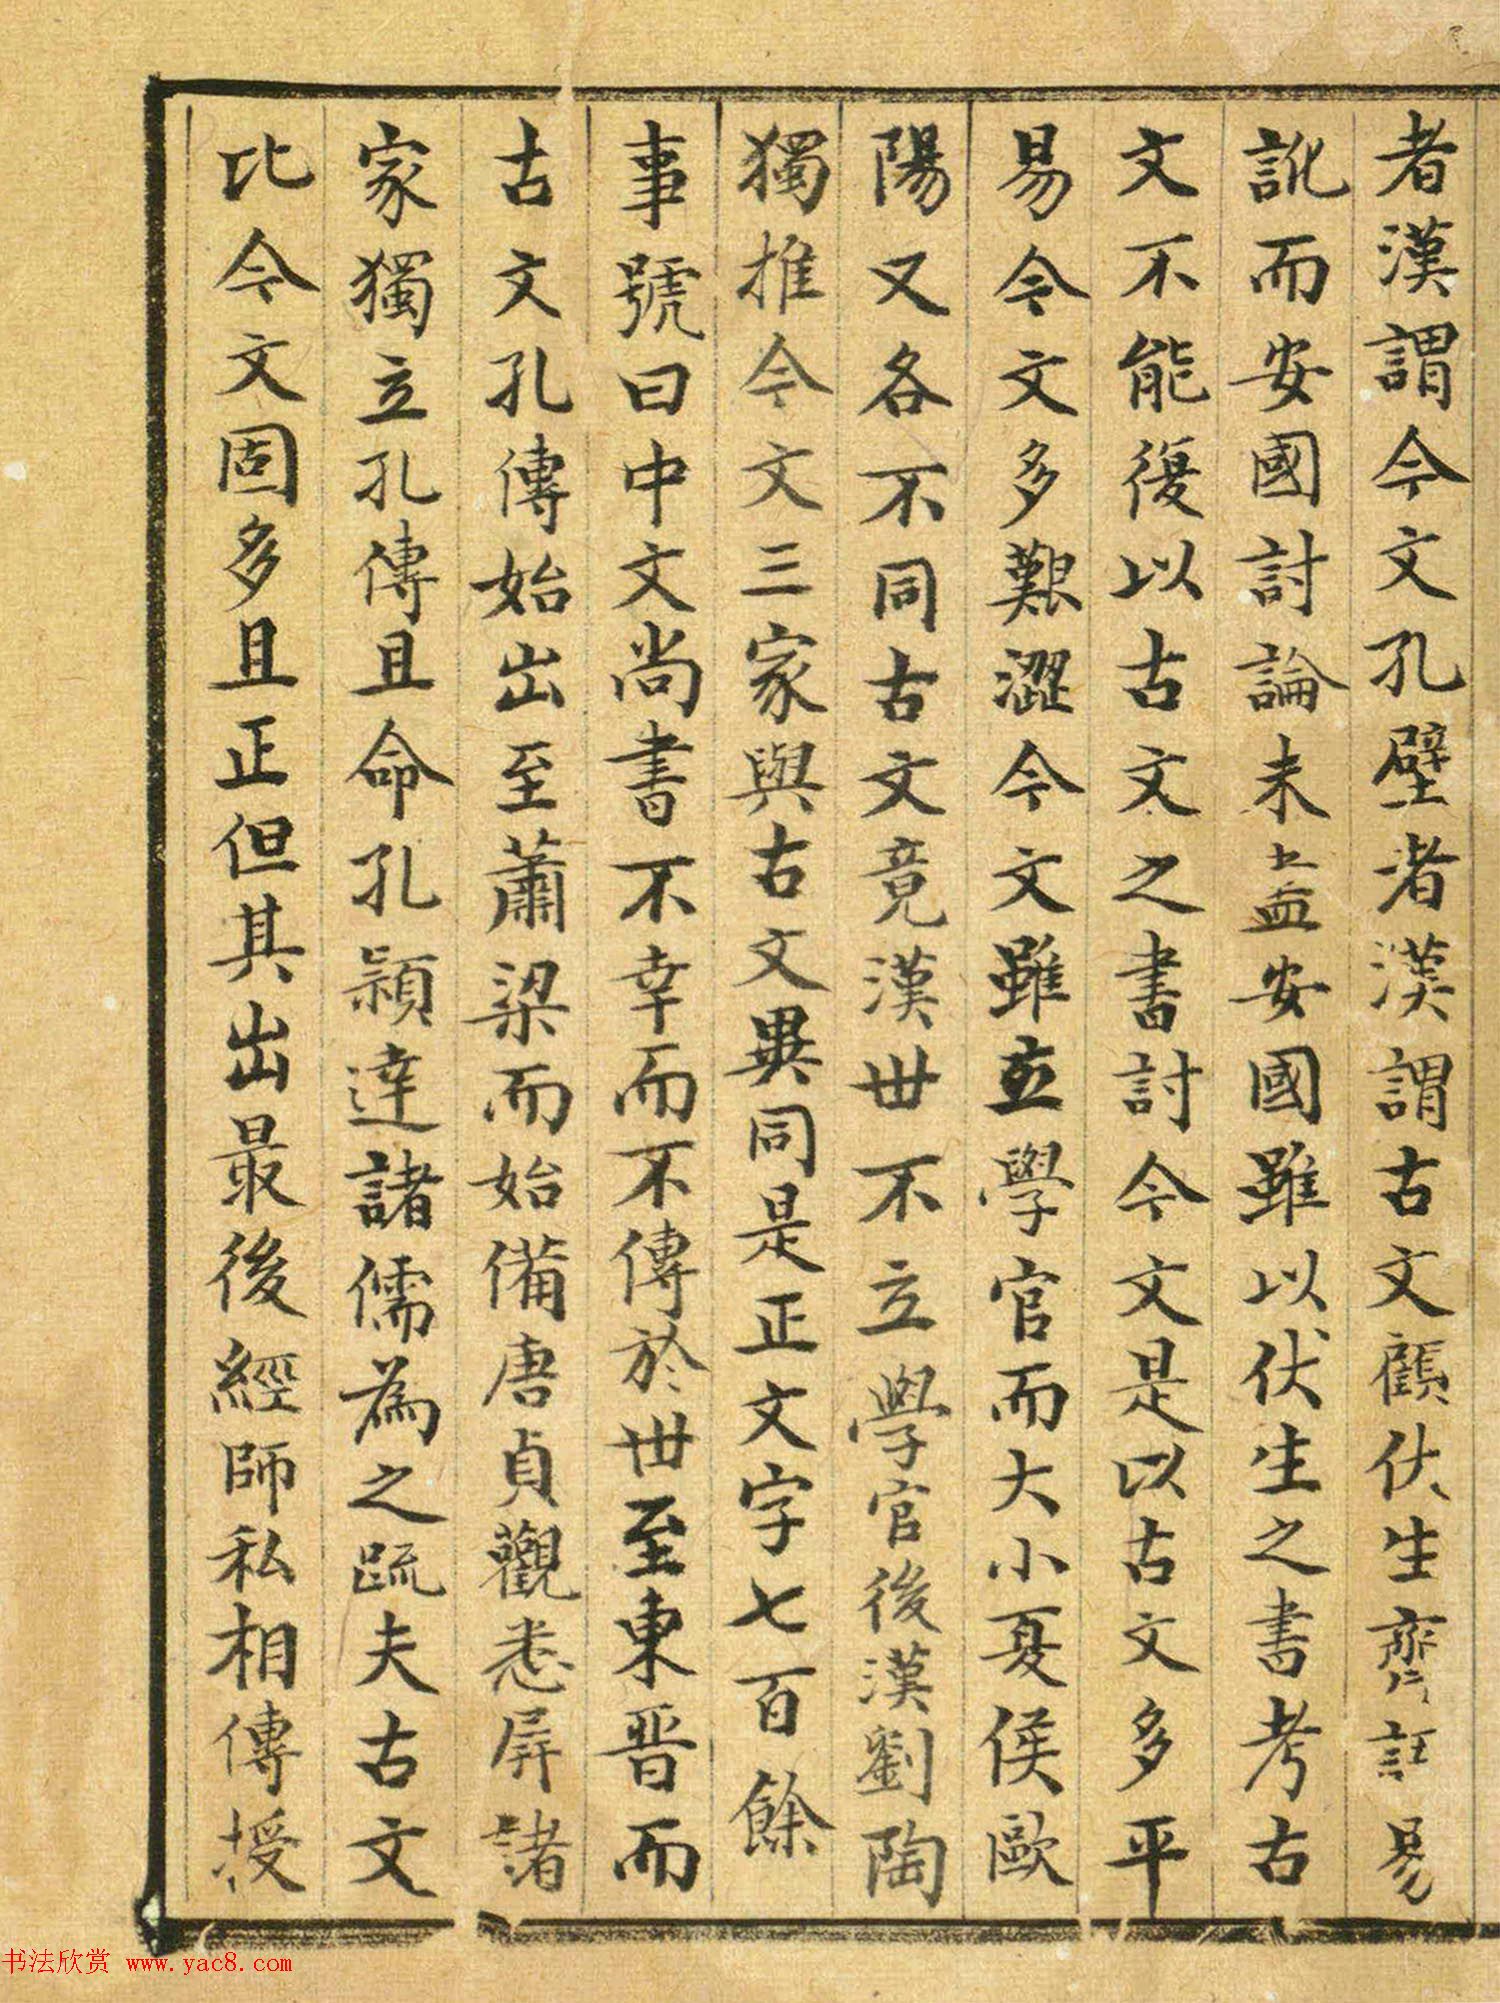 者漢謂今文孔壁者漢謂古文顧伏生齊語易
訛而安國討論未盡安國雖以伏生之書考古
文不能復以古文之書討今文是以古文多平
易今文多艱澀今文雖立學官而大小夏侯歐
陽又各不同古文竟漢世不立學官後漢劉陶
獨推今文三家與古文異同是正文字七百餘
事號曰中文尚書不幸而不傳於世至東晋而
古文孔傳始出至蕭梁而始備唐貞觀悉屏諸
家獨立孔傳且命孔穎達諸儒為之疏夫古文
比今文固多且正但其出最後經師私相傳授
书法欣赏 www.yac8.com